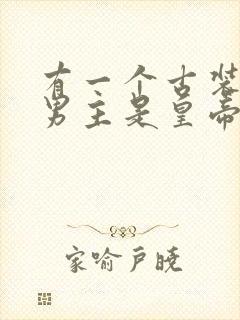 有一个古装
男主是皇帝
家喻户晓